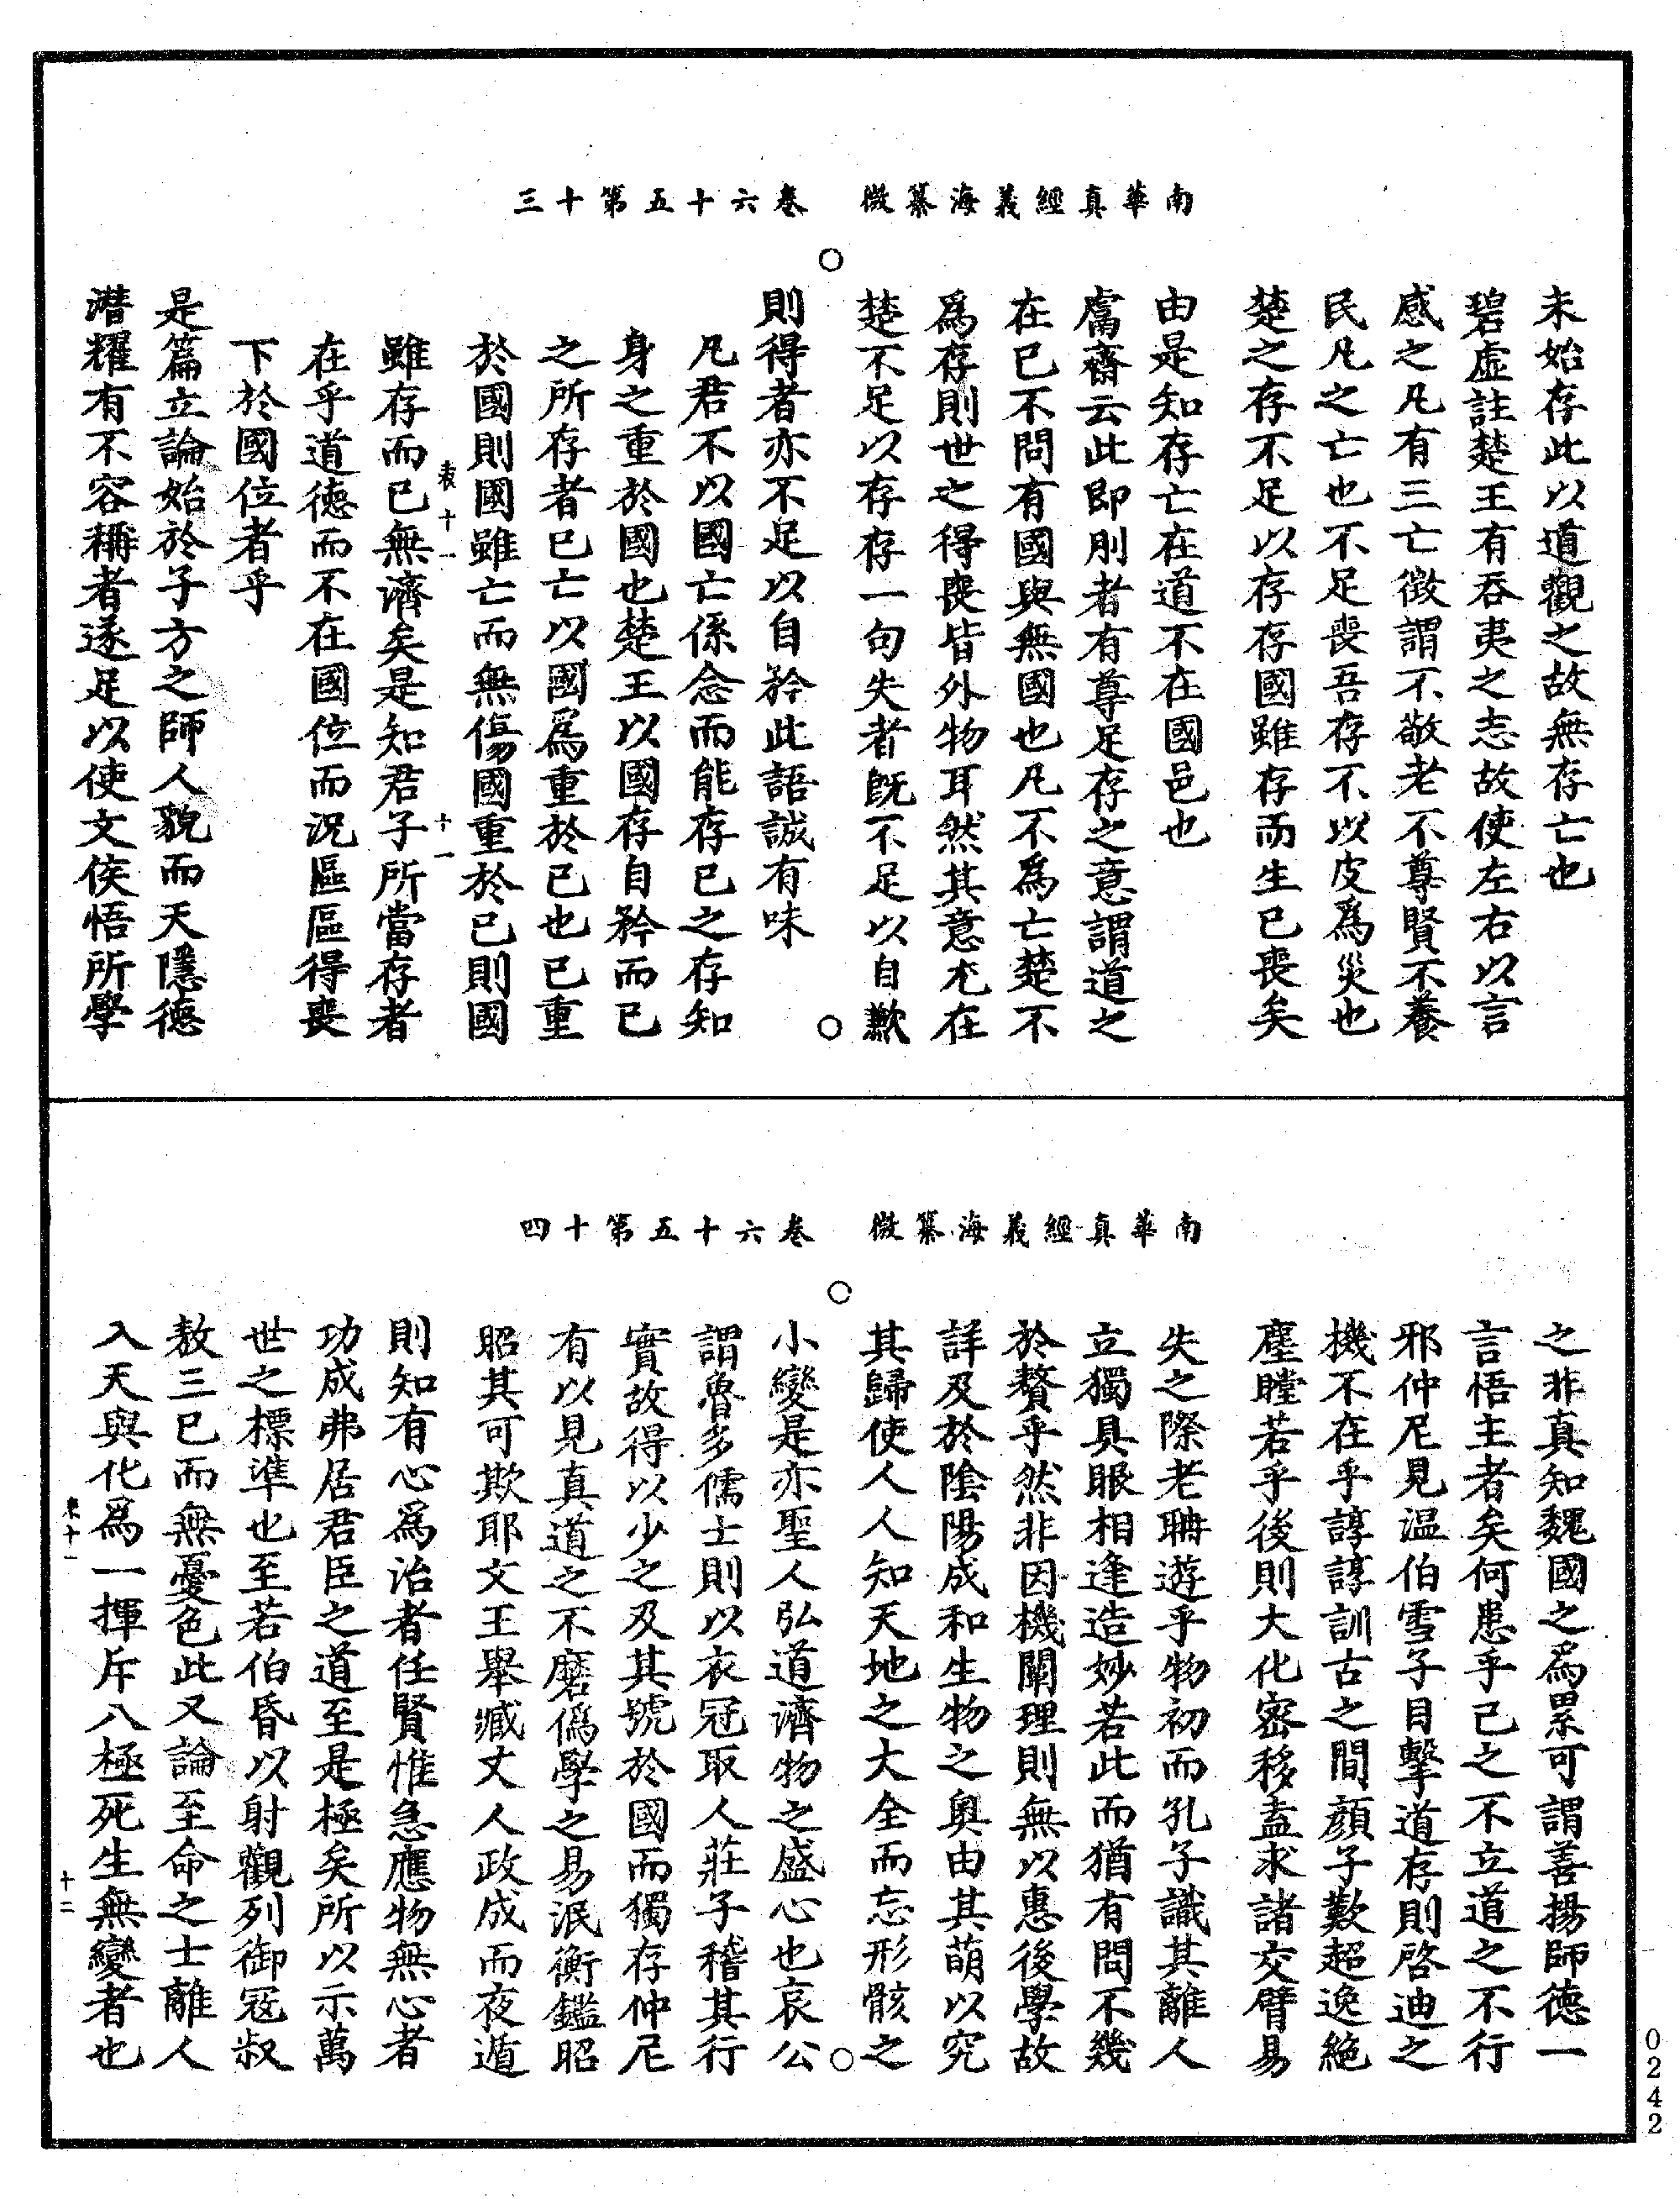 南華真經義海纂微　卷六十五第十三
未始存此以道觀之故無存亡也
碧虛註楚王有吞夷之志故使左右以言
感之凡有三亡徵謂不敬老不尊賢不養
民凡之亡也不足喪吾存不以皮為災也
楚之存不足以存存國雖存而生已喪矣
由是知存亡在道不在國邑也
鬳齋云此即刖者有尊足存之意謂道之
在已不問有國與無國也凡不為亡楚不
為存則世之得喪皆外物耳然其意尤在
楚不足以存存一句失者既不足以自歉
則得者亦不足以自矜此語誠有味
凡君不以國亡係念而能存已之存知
身之重於國也楚王以國存自矜而已
之所存者已亡以國為重於已也已重
於國則國雖亡而無傷國重於已則國
表十一
十一
雖存而已無濟矣是知君子所當存者
在乎道德而不在國位而況區區得喪
下於國位者乎
是篇立論始於子方之師人貌而天隱德
潛耀有不容稱者遂足以使文侯悟所學
南華真經義海纂微　卷六十五第十四
之非真知魏國之為累可謂善揚師德一
言悟主者矣何患乎己之不立道之不行
邪仲尼見溫伯雪子目擊道存則啓迪之
機不在乎諄諄訓古之間顏子歎超逸絕
塵瞠若乎後則大化密移盍求諸交臂易
失之際老聃遊乎物初而孔子識其離人
立獨具眼相逢造妙若此而猶有問不幾
於贅乎然非因機闡理則無以惠後學故
詳及於陰陽成和生物之奧由其萌以究
其歸使人人知天地之大全而忘形骸之
小變是亦聖人弘道濟物之盛心也哀公
謂魯多儒士則以衣冠取人莊子稽其行
實故得以少之及其號於國而獨存仲尼
有以見真道之不磨偽學之易泯衡鑑昭
昭其可欺耶文王舉臧丈人政成而夜遁
則知有心為治者任賢惟急應物無心者
功成弗居君臣之道至是極矣所以示萬
世之標準也至若伯昏以射觀列御寇叔
敖三已而無憂色此又論至命之士離人
入天與化為一揮斥八極死生無變者也
表十一
十二
0242